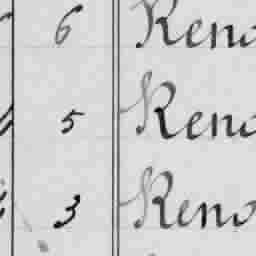 6 Reno
5 Reno
3 Reno